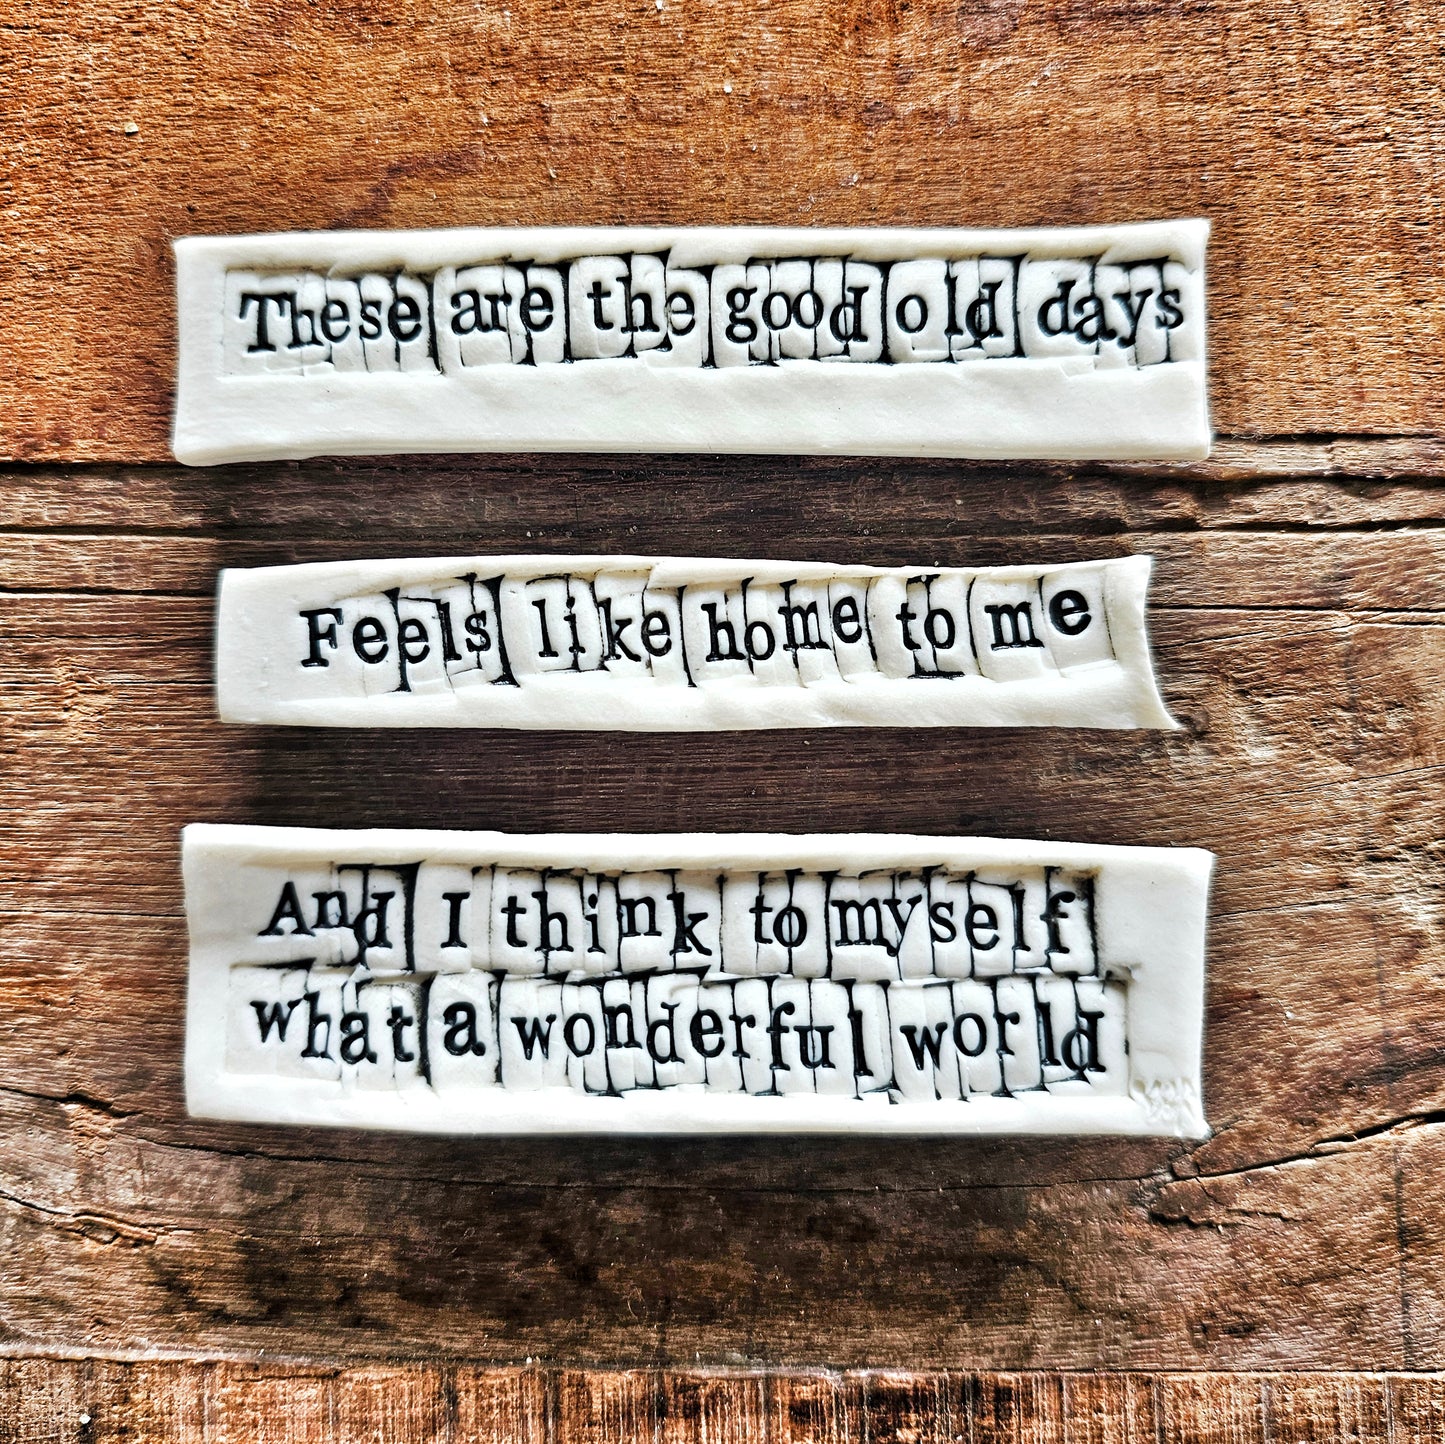 These are the good old days
Feels like home to me
And I think to myself
what a wonderful world